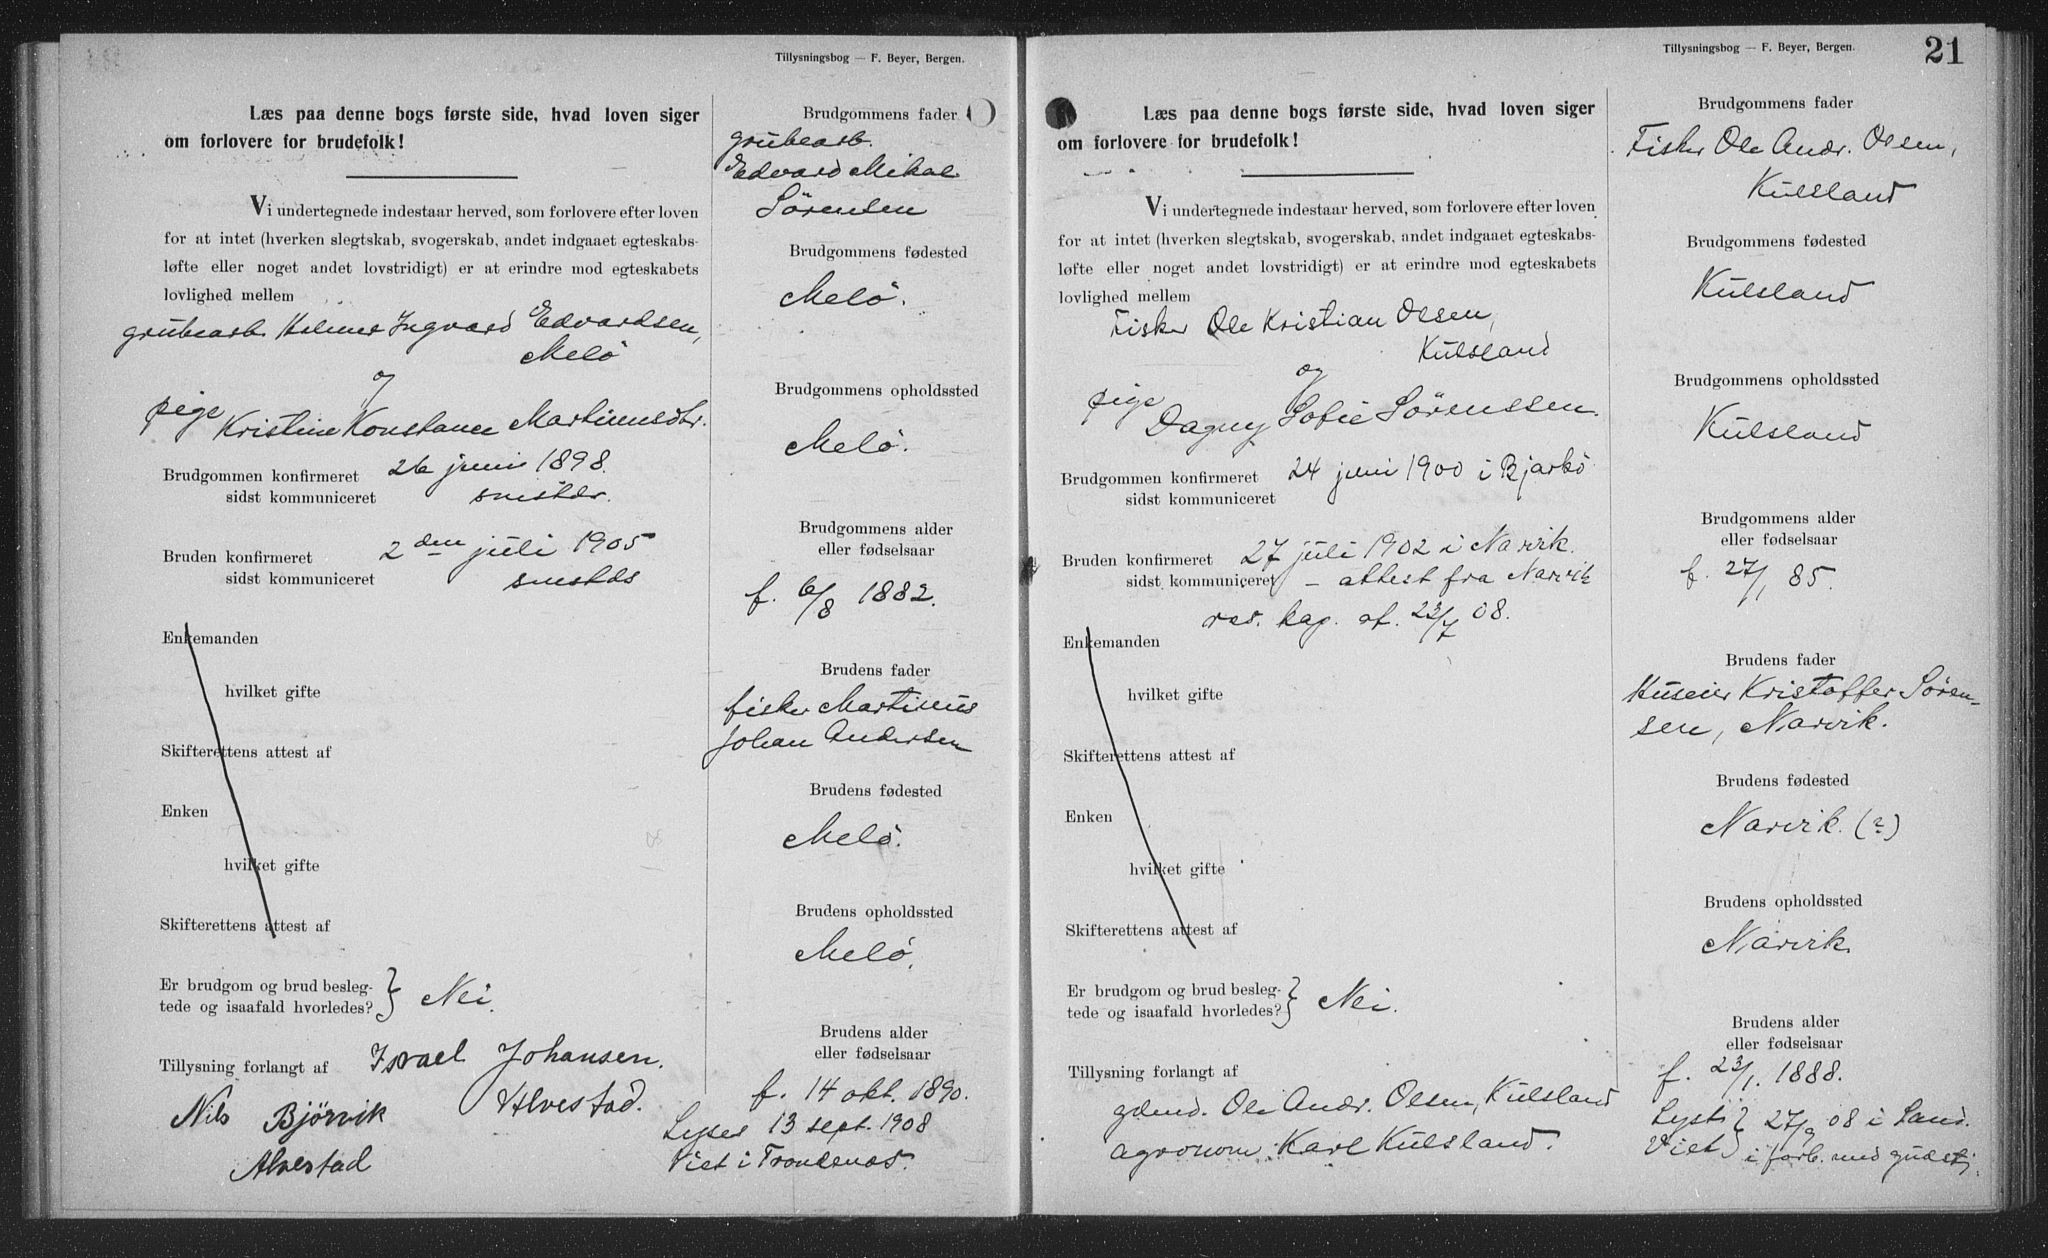 Tillysningsbog — F. Beyer, Bergen.
Læs paa denne bogs første side, hvad loven siger
om forlovere for brudefolk!
Vi undertegnede indestaar herved, som forlovere efter loven
for at intet (hverken slegtskab, svogerskab, andet indgaaet egteskabs-
løfte eller noget andet lovstridigt) er at erindre mod egteskabets
lovlighed mellem
grubearb. Helmer Ingvard Edvardsen,
Melö
og
pige Kristine Konstance Martinusdtr.
Brudgommen konfirmeret 26 juni 1898.
sidst kommuniceret
Bruden konfirmeret 2den juli 1905
sidst kommuniceret
Enkemanden
hvilket gifte
Skifterettens attest af
Enken
hvilket gifte
Skifterettens attest af
Er brudgom og brud besleg-
tede og isaafald hvorledes? } Nei.
Tillysning forlangt af Israel Johansen.
Alvestad.
Nils Bjørvik
Alvestad
Brudgommens fader
grubearb.
Edvard Mikal
Sörensen
Brudgommens fødested
Melö.
Brudgommens opholdssted
Melö.
Brudgommens alder
eller fødselsaar
f. 6/8 1882.
Brudens fader
fisker Martinus
Johan Andersen
Brudens fødested
Melö.
Brudens opholdssted
Melö.
Brudens alder
eller fødselsaar
f. 14 okt. 1890.
Lyses 13 sept. 1908
Viet i Trondenas.
Tillysningsbog — F. Beyer, Bergen.
21
Læs paa denne bogs første side, hvad loven siger
om forlovere for brudefolk!
Vi undertegnede indestaar herved, som forlovere efter loven
for at intet (hverken slegtskab, svogerskab, andet indgaaet egteskabs-
løfte eller noget andet lovstridigt) er at erindre mod egteskabets
lovlighed mellem
Fisker Ole Kristian Olsen,
Kulsland
og
pige Dagny Sofie Sörenssen.
Brudgommen konfirmeret 24 juni 1900 i Bjarkö
sidst kommuniceret
Bruden konfirmeret 27 juli 1902 i Narvik.
sidst kommuniceret – attest fra Narvik
res. kap. af. 23/7 08.
Enkemanden
hvilket gifte
Skifterettens attest af
Enken
hvilket gifte
Skifterettens attest af
Er brudgom og brud besleg-
tede og isaafald hvorledes? } Nei.
Tillysning forlangt af
gdmd. Ole Andr. Olsen, Kulsland
agronom Karl Kulsland.
Brudgommens fader
Fisker Ole Andr. Olsen,
Kulsland
Brudgommens fødested
Kulsland
Brudgommens opholdssted
Kulsland
Brudgommens alder
eller fødselsaar
f. 27/1 85.
Brudens fader
Huseier Kristoffer Sören-
sen, Narvik.
Brudens fødested
Narvik. (?)
Brudens opholdssted
Narvik
Brudens alder
eller fødselsaar
f. 23/1. 1888.
Lyst } 27/9 08 i Sand.
Viet } i forb. med gudstj.